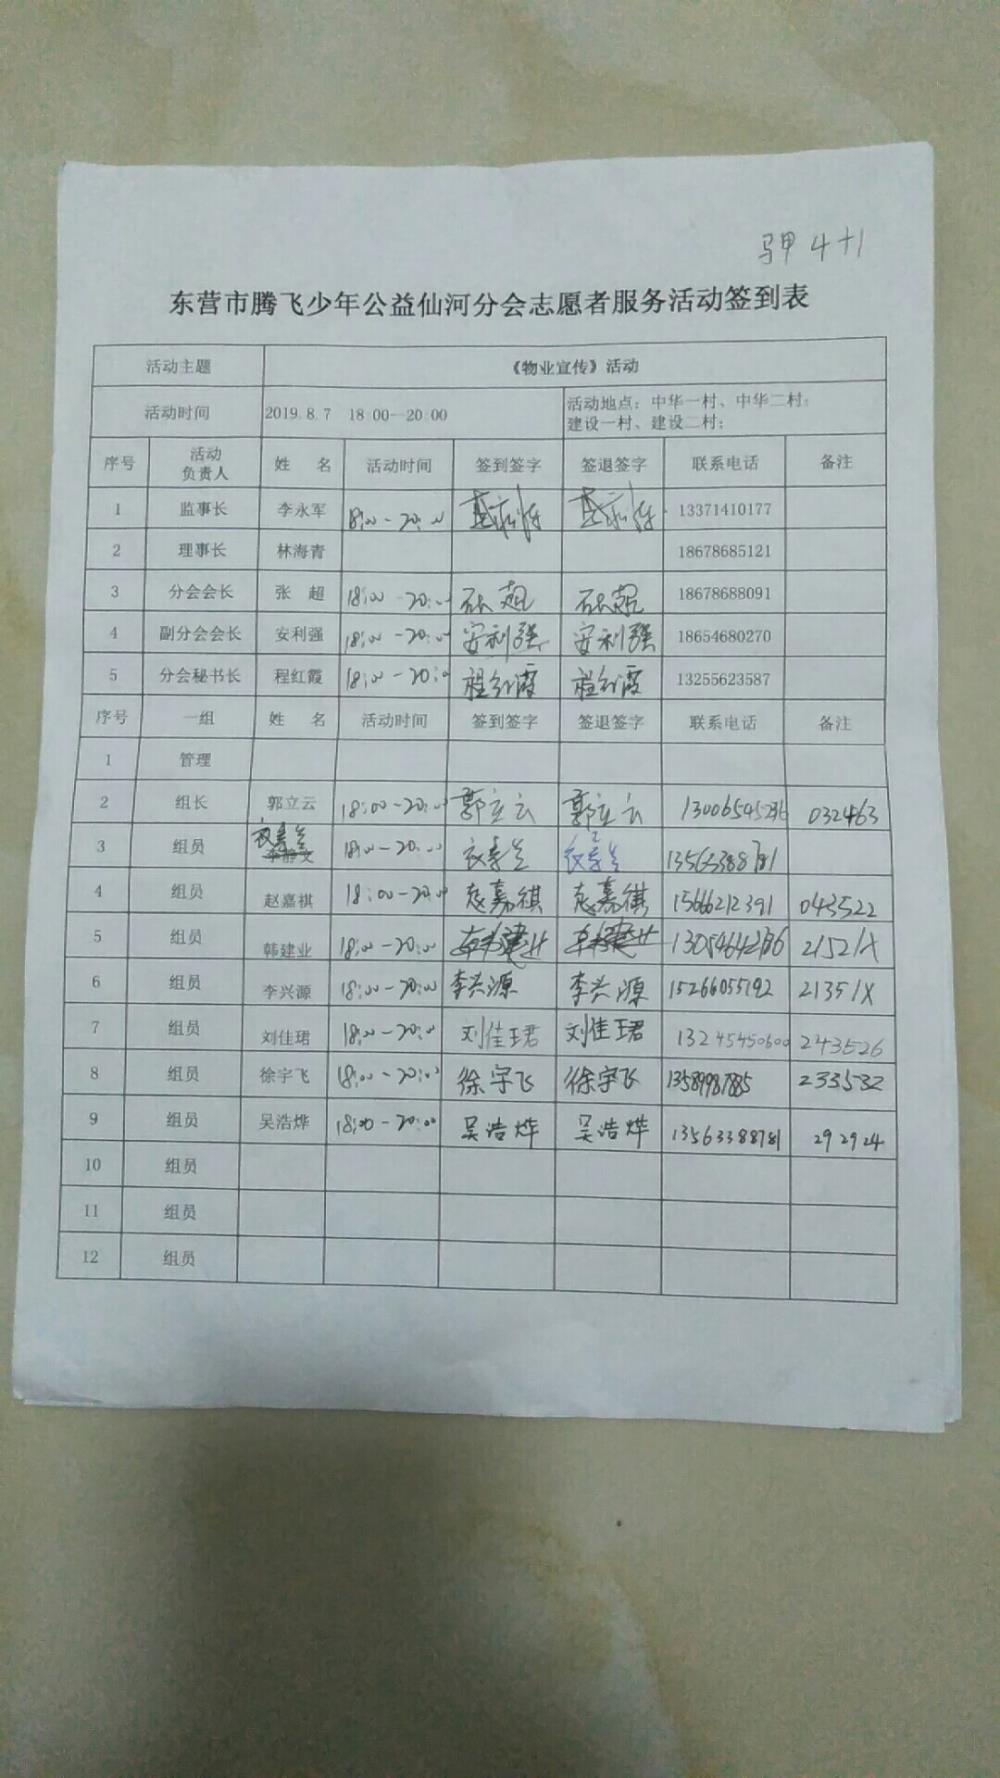 马甲 4+1
东营市腾飞少年公益仙河分会志愿者服务活动签到表
活动主题 《物业宣传》活动
活动时间 2019.8.7 18:00—20:00 活动地点：中华一村、中华二村；
建设一村、建设二村；
序号 活动负责人 姓 名 活动时间 签到签字 签退签字 联系电话 备注
1 监事长 李永军 18:00-20:00 13371410177
2 理事长 林海青 18678685121
3 分会会长 张 超 18:00-20:00 张超 张超 18678688091
4 副分会会长 安利强 18:00-20:00 安利强 安利强 18654680270
5 分会秘书长 程红霞 18:00-20:00 程红霞 程红霞 13255623587
序号 一组 姓 名 活动时间 签到签字 签退签字 联系电话 备注
1 管理
2 组长 郭立云 18:00-20:00 郭立云 郭立云 032463
3 组员 18:00-20:00 13563388781
4 组员 赵嘉祺 18:00-20:00 赵嘉祺 赵嘉祺 15666212391 043522
5 组员 韩建业 18:00-20:00 韩建业 韩建业 21521X
6 组员 李兴源 18:00-20:00 李兴源 李兴源 15266055192 21351X
7 组员 刘佳珺 18:00-20:00 刘佳珺 刘佳珺 13245450600 243526
8 组员 徐宇飞 18:00-20:00 徐宇飞 徐宇飞 13589987885 233532
9 组员 吴浩烨 18:00-20:00 吴浩烨 吴浩烨 13563388781 292924
10 组员
11 组员
12 组员